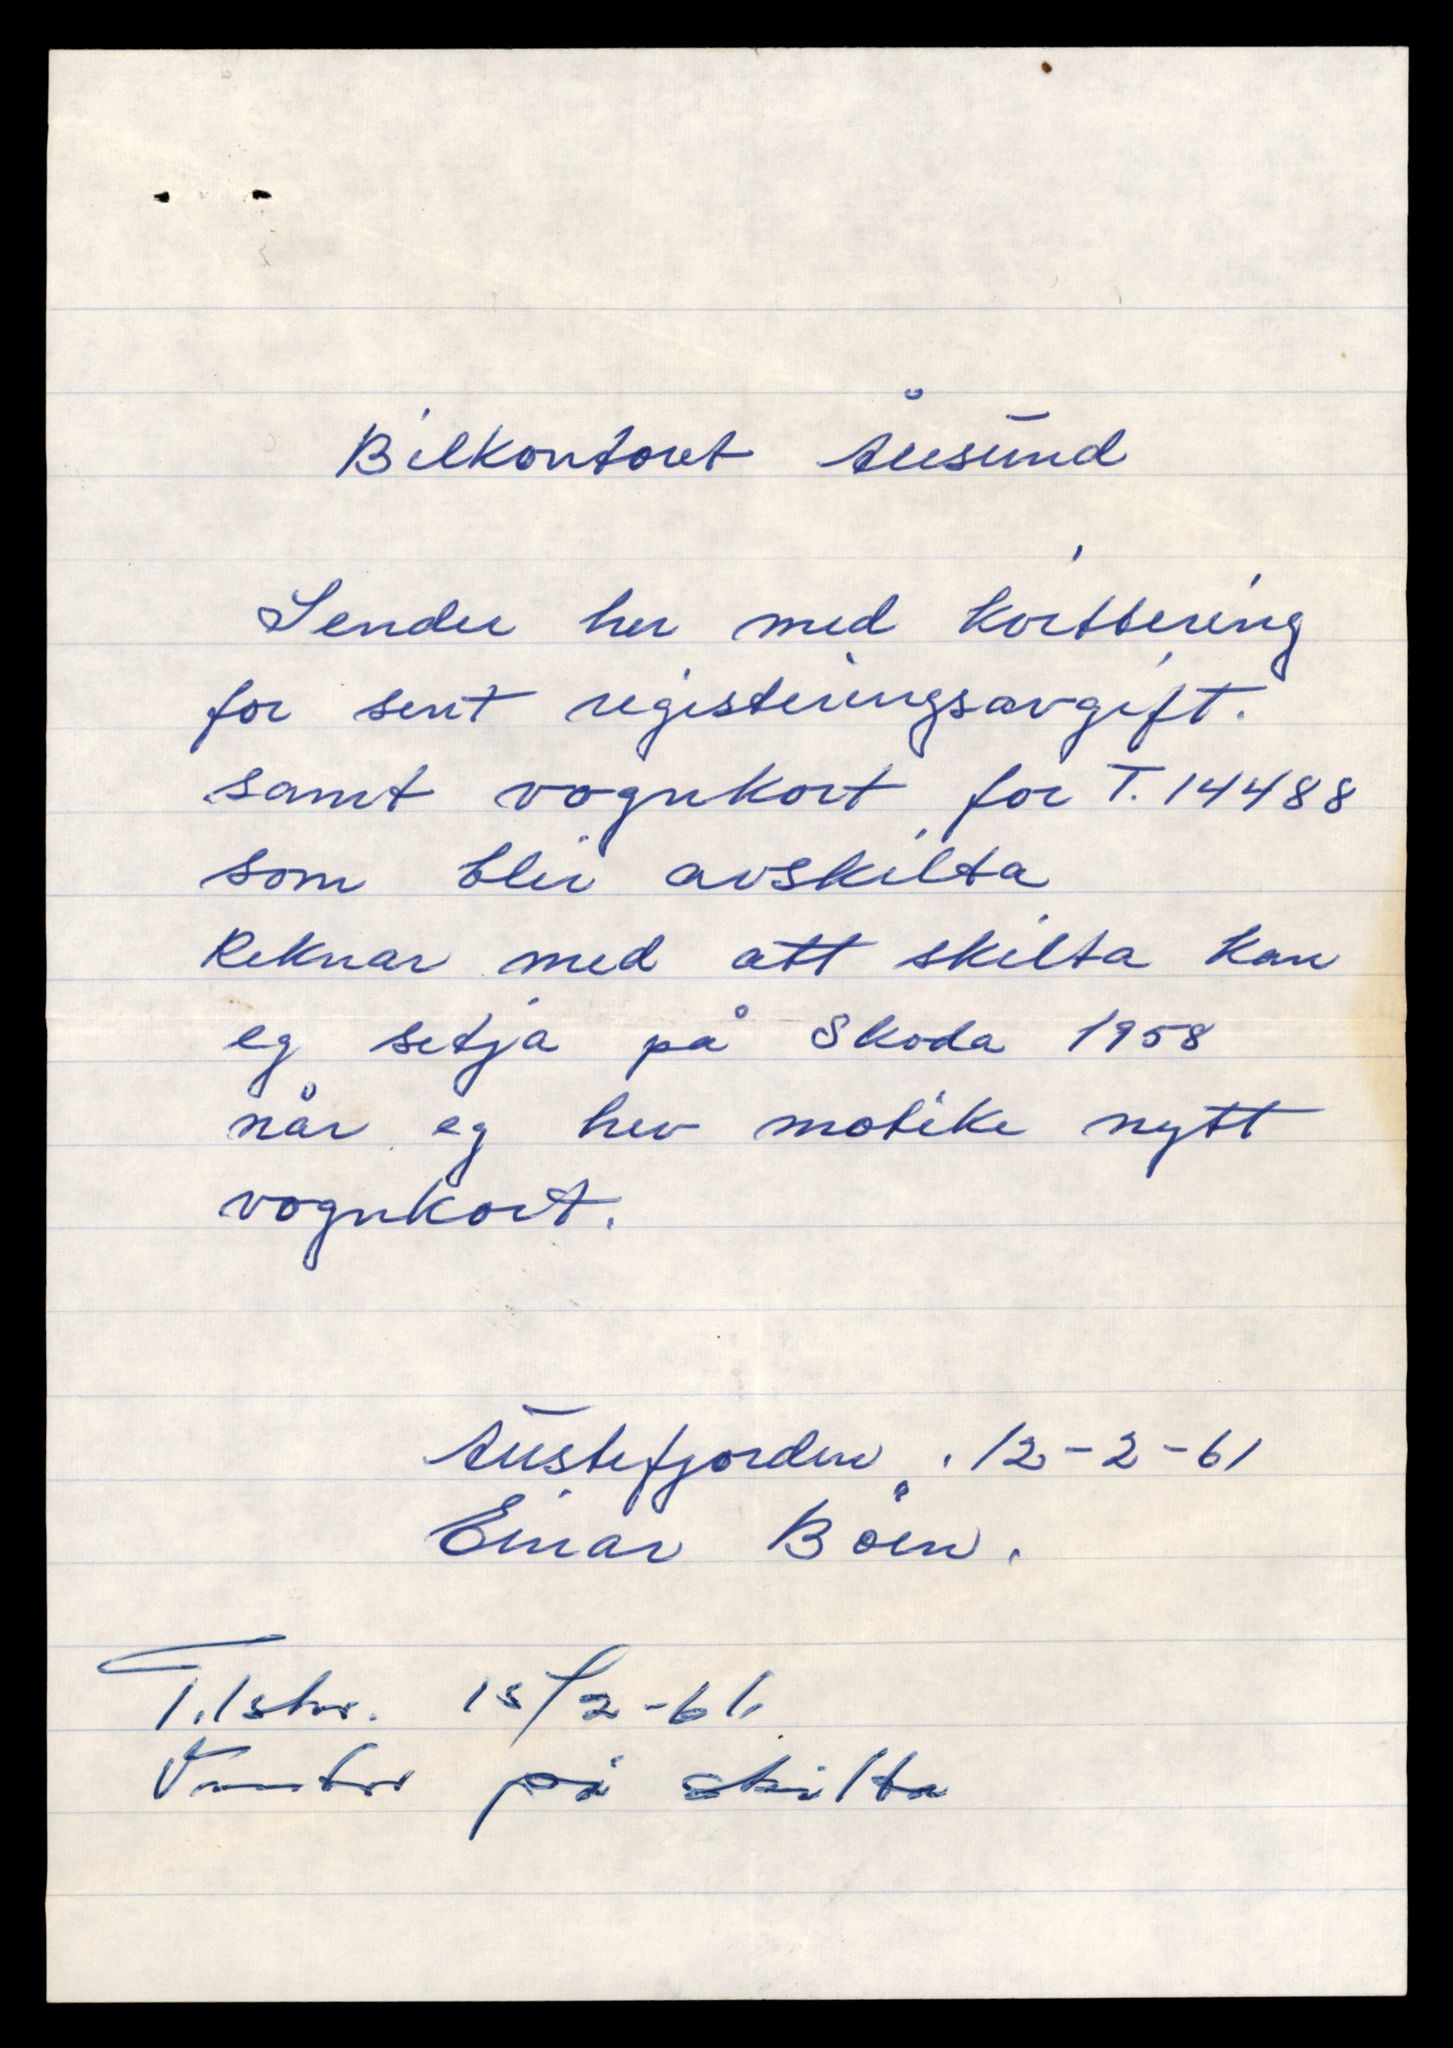 Bilkontoret Ålesund
Sender her med kvittering
for sent registeringsavgift.
samt vognkort for T. 14488
som blir avskilta
Reknar med att skilta kan
eg setja på Skoda 1958
når eg hev motike nytt
vognkort.
Austefjorden . 12-2-61
Einar Böen.
Tilskr. 15/2-61.
på skilta